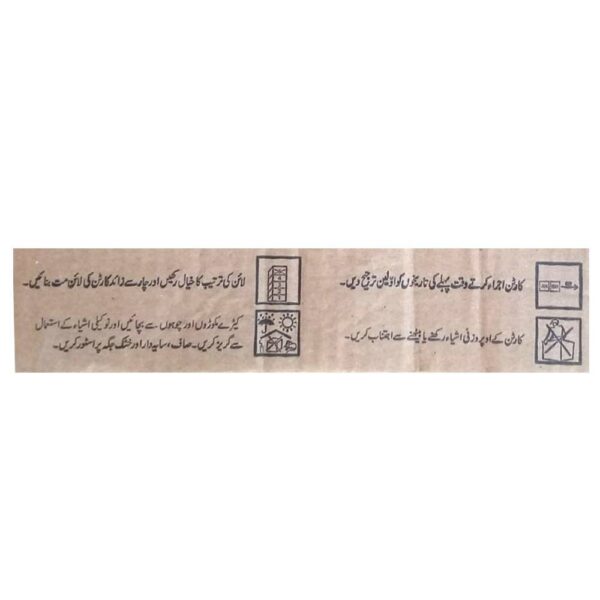 کارٹن اجراء کرتے وقت پہلے کی تاریخوں کو اوّلین ترجیح دیں۔
کارٹن کے اوپر وزنی اشیاء رکھنے یا بیٹھنے سے اجتناب کریں۔
لائن کی ترتیب کا خیال رکھیں اور چار سے زائد کارٹن کی لائن مت بنائیں۔
کیڑے مکوڑوں اور چوہوں سے بچائیں اور نوکیلی اشیاء کے استعمال
سے گریز کریں۔ صاف، سایہ دار اور خشک جگہ پر اسٹور کریں۔